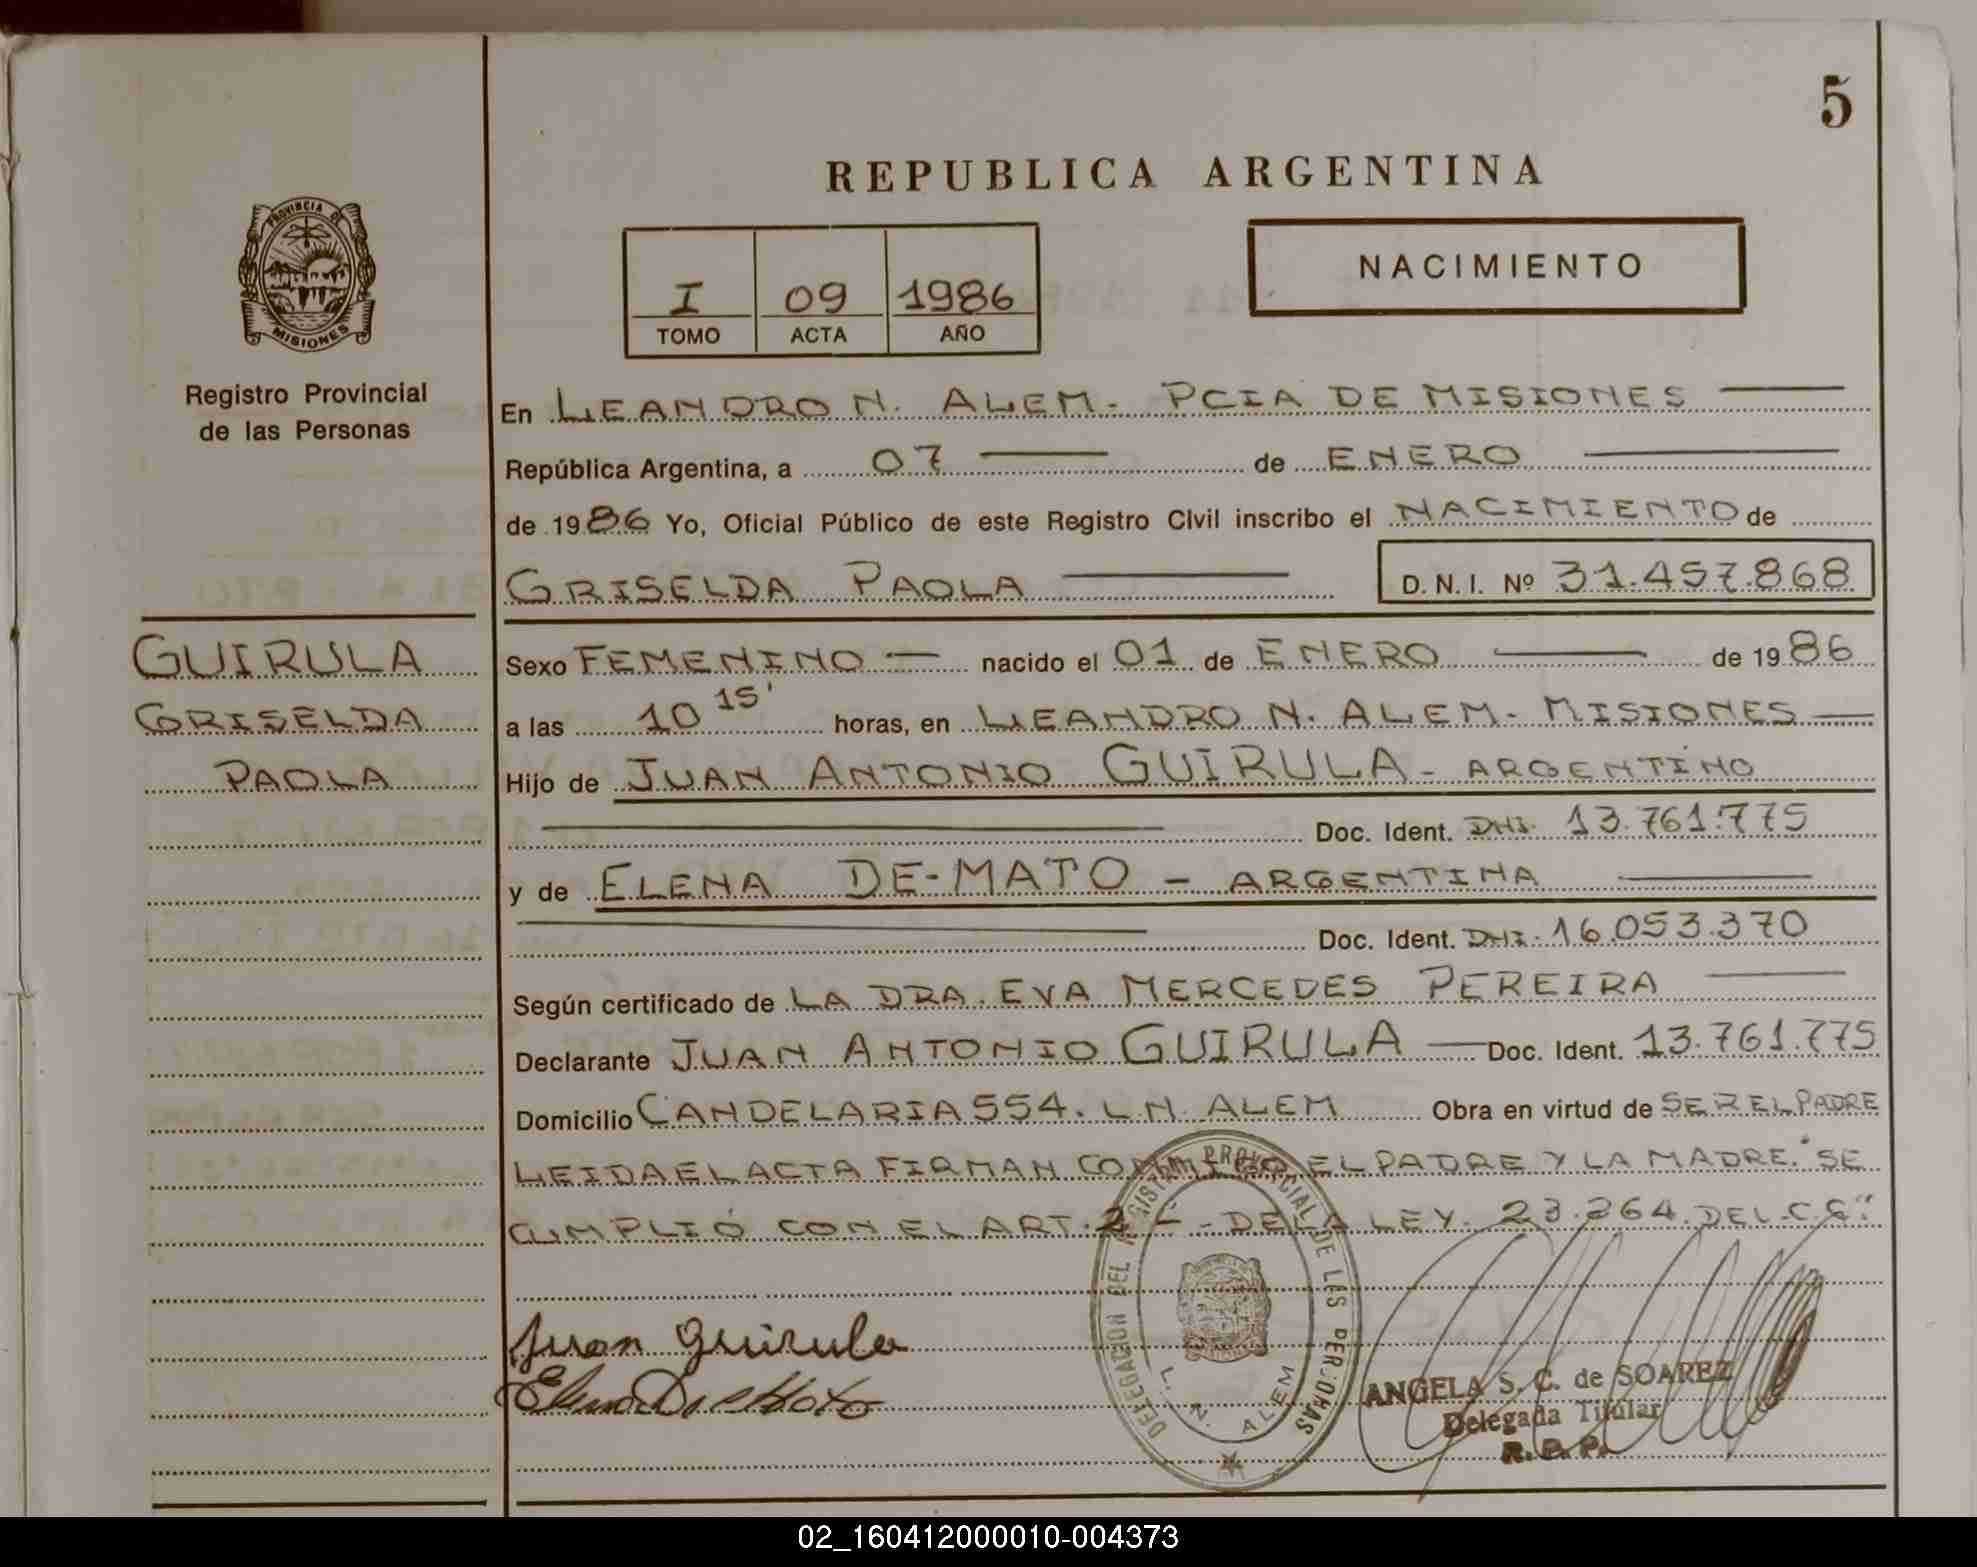 5
REPUBLICA ARGENTINA
PROVINCIA DE
MISIONES
Registro Provincial
de las Personas
I 09 1986
TOMO ACTA AÑO
NACIMIENTO
En LEANDRO N. ALEM - PCIA DE MISIONES
República Argentina, a 07 de ENERO
de 1986 Yo, Oficial Público de este Registro Civil inscribo el NACIMIENTO de
GRISELDA PAOLA D. N. I. Nº 31.457.868
GUIRULA
GRISELDA
PAOLA
Sexo FEMENINO - nacido el 01 de ENERO de 1986
a las 10 15' horas, en LEANDRO N. ALEM - MISIONES
Hijo de JUAN ANTONIO GUIRULA - ARGENTINO
Doc. Ident. DNI. 13.761.775
y de ELENA DE-MATO - ARGENTINA
Doc. Ident. DNI. 16.053.370
Según certificado de LA DRA. EVA MERCEDES PEREIRA
Declarante JUAN ANTONIO GUIRULA Doc. Ident. 13.761.775
Domicilio CANDELARIA 554. L.N. ALEM Obra en virtud de SER EL PADRE
LEIDA EL ACTA FIRMAN CONMIGO EL PADRE Y LA MADRE. "SE
CUMPLIÓ CON EL ART. 2 - - DE LA LEY. 23.264. DEL C.C"
Juan Guirula
Elena De Mato
DELEGACION DEL REGISTRO PROVINCIAL DE LAS PERSONAS
L. N. ALEM
ANGELA S. C. de SOAREZ
Delegada Titular
R. P. P.
02_160412000010-004373